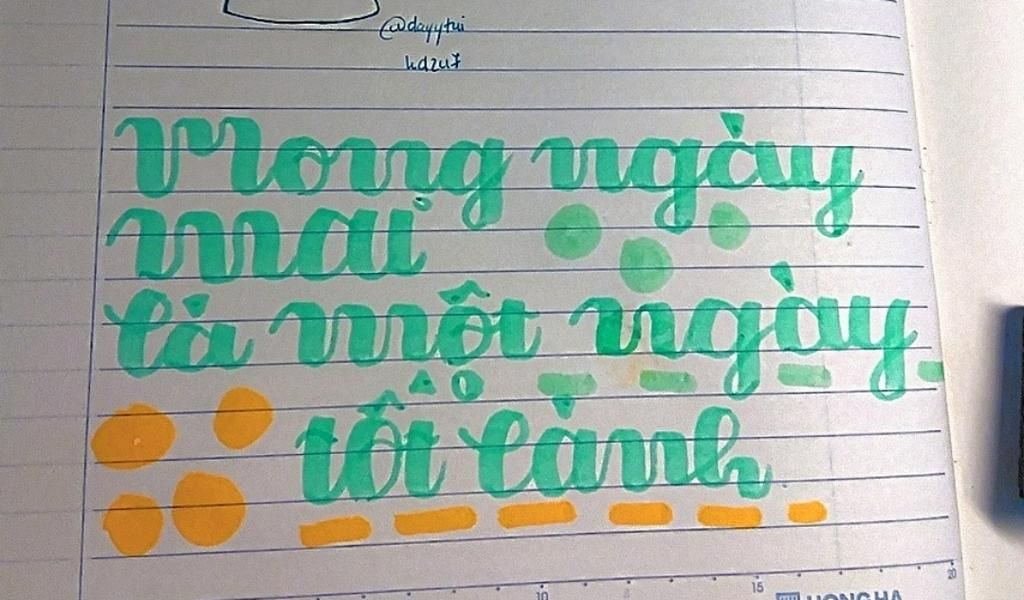 @dayytui
Mong ngày
mai
là một ngày
tốt lành
10 15 20
HONG HA